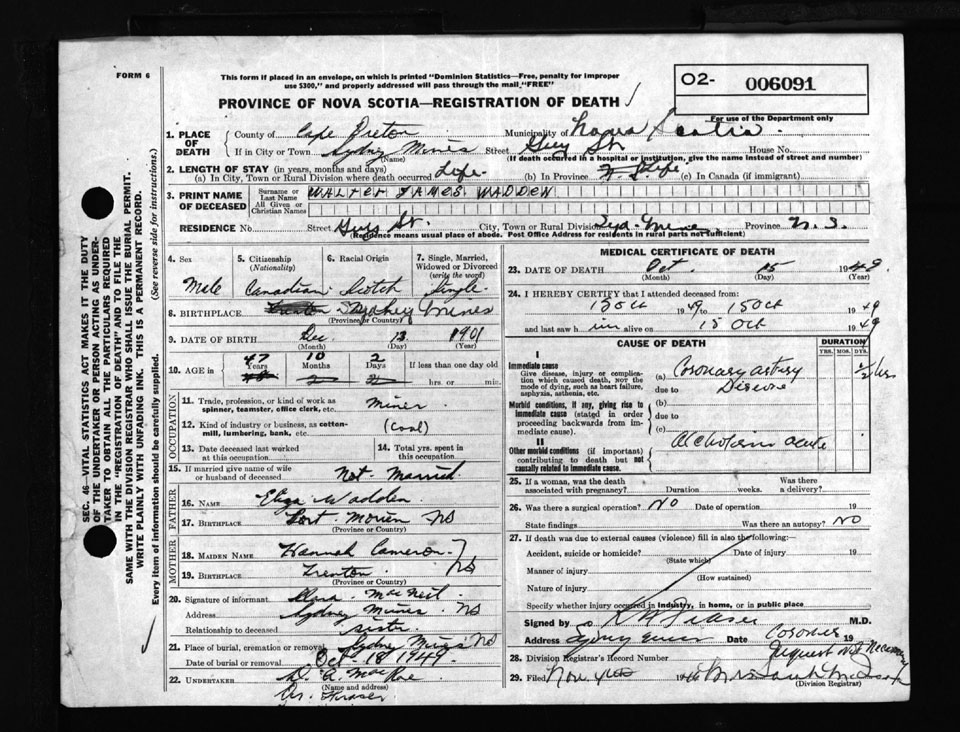 FORM 6
This form if placed in an envelope, on which is printed "Dominion Statistics—Free, penalty for improper
use $300," and properly addressed will pass through the mail "FREE"
PROVINCE OF NOVA SCOTIA—REGISTRATION OF DEATH
O2- 006091
For use of the Department only
1. PLACE OF DEATH County of Cape Breton Municipality of Scotia
If in City or Town Sydney Mines Street Guy St House No.
(Name) (If death occurred in a hospital or institution, give the name instead of street and number)
2. LENGTH OF STAY (in years, months and days)
(a) In City, Town or Rural Division where death occurred Life. (b) In Province Life (c) In Canada (if immigrant)
3. PRINT NAME OF DECEASED Surname or Last Name WALTER JAMES WADDEN
All Given or Christian Names
RESIDENCE No. Street Guy St. City, Town or Rural Division Syd. Mines Province N.S.
(Residence means usual place of abode. Post Office Address for residents in rural parts not sufficient)
4. Sex 5. Citizenship (Nationality) 6. Racial Origin 7. Single, Married, Widowed or Divorced (write the word)
Male Canadian Scotch Single
8. BIRTHPLACE Sydney Mines
(Province or Country)
9. DATE OF BIRTH Dec. 13 1901
(Month) (Day) (Year)
10. AGE in 47 Years 10 Months 2 Days If less than one day old
hrs. or min.
OCCUPATION
11. Trade, profession, or kind of work as spinner, teamster, office clerk, etc. Miner
12. Kind of industry or business, as cotton-mill, lumbering, bank, etc. (Coal)
13. Date deceased last worked at this occupation 14. Total yrs. spent in this occupation
15. If married give name of wife or husband of deceased Not Married
FATHER
16. NAME Wadden
17. BIRTHPLACE Port Morien NS
(Province or Country)
MOTHER
18. MAIDEN NAME Hannah Cameron
19. BIRTHPLACE Trenton NS
(Province or Country)
20. Signature of informant MacNeil
Address Sydney Mines NS
Relationship to deceased sister
21. Place of burial, cremation or removal Sydney Mines NS
Date of burial or removal Oct 18 1949
22. UNDERTAKER D. A.
(Name and address)
Fraser
MEDICAL CERTIFICATE OF DEATH
23. DATE OF DEATH Oct. 15 1949
(Month) (Day) (Year)
24. I HEREBY CERTIFY that I attended deceased from:
15 Oct 1949 to 15 Oct 1949
and last saw him alive on 15 Oct 1949
CAUSE OF DEATH DURATION
YRS. MOS. DYS.
I
Immediate cause
Give disease, injury or complication which caused death, not the mode of dying, such as heart failure, asphyxia, asthenia, etc.
(a) Coronary artery 1/2 hrs
due to Disease
Morbid conditions, if any, giving rise to immediate cause (stated in order proceeding backwards from immediate cause).
(b)
due to
(c)
II
Other morbid conditions (if important) contributing to death but not causally related to immediate cause.
Alcoholism acute
25. If a woman, was the death associated with pregnancy? Duration weeks. Was there a delivery?
26. Was there a surgical operation? NO Date of operation 19
State findings Was there an autopsy? NO
27. If death was due to external causes (violence) fill in also the following:
Accident, suicide or homicide? Date of injury 19
(State which)
Manner of injury
(How sustained)
Nature of injury
Specify whether injury occurred in industry, in home, or in public place
Signed by Fraser M.D.
Address Sydney Mines Date Coroner 19
Inquest Not Necessary
28. Division Registrar's Record Number
29. Filed Nov 19
(Division Registrar)
SEC. 46—VITAL STATISTICS ACT MAKES IT THE DUTY
OF THE UNDERTAKER OR PERSON ACTING AS UNDER-
TAKER TO OBTAIN ALL THE PARTICULARS REQUIRED
IN THE "REGISTRATION OF DEATH" AND TO FILE THE
SAME WITH THE DIVISION REGISTRAR WHO SHALL ISSUE THE BURIAL PERMIT.
WRITE PLAINLY WITH UNFADING INK. THIS IS A PERMANENT RECORD.
Every item of information should be carefully supplied. (See reverse side for instructions.)